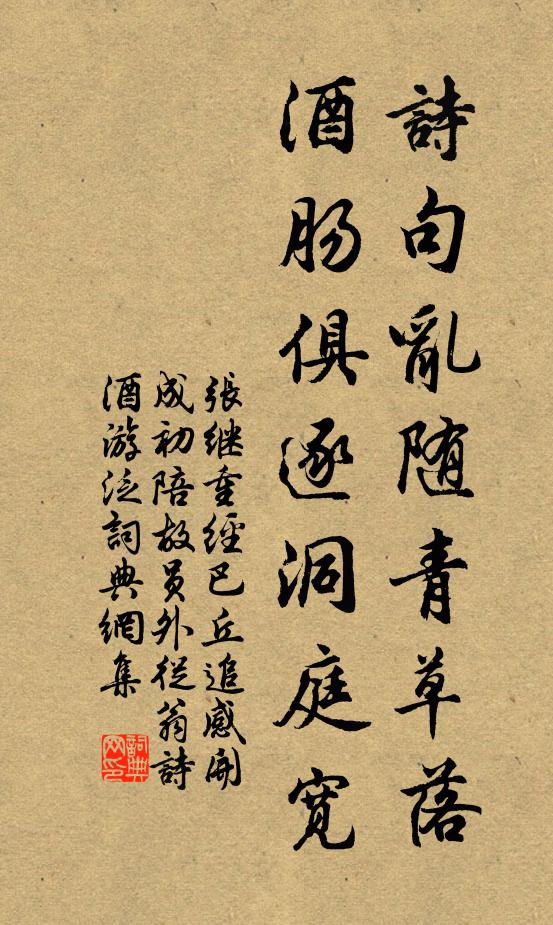 詩句亂随青草落
酒肠俱逐洞庭寬
張继重經巴丘追感開
成初陪故員外從翁詩
酒游泛詞典網集
詞典
网印